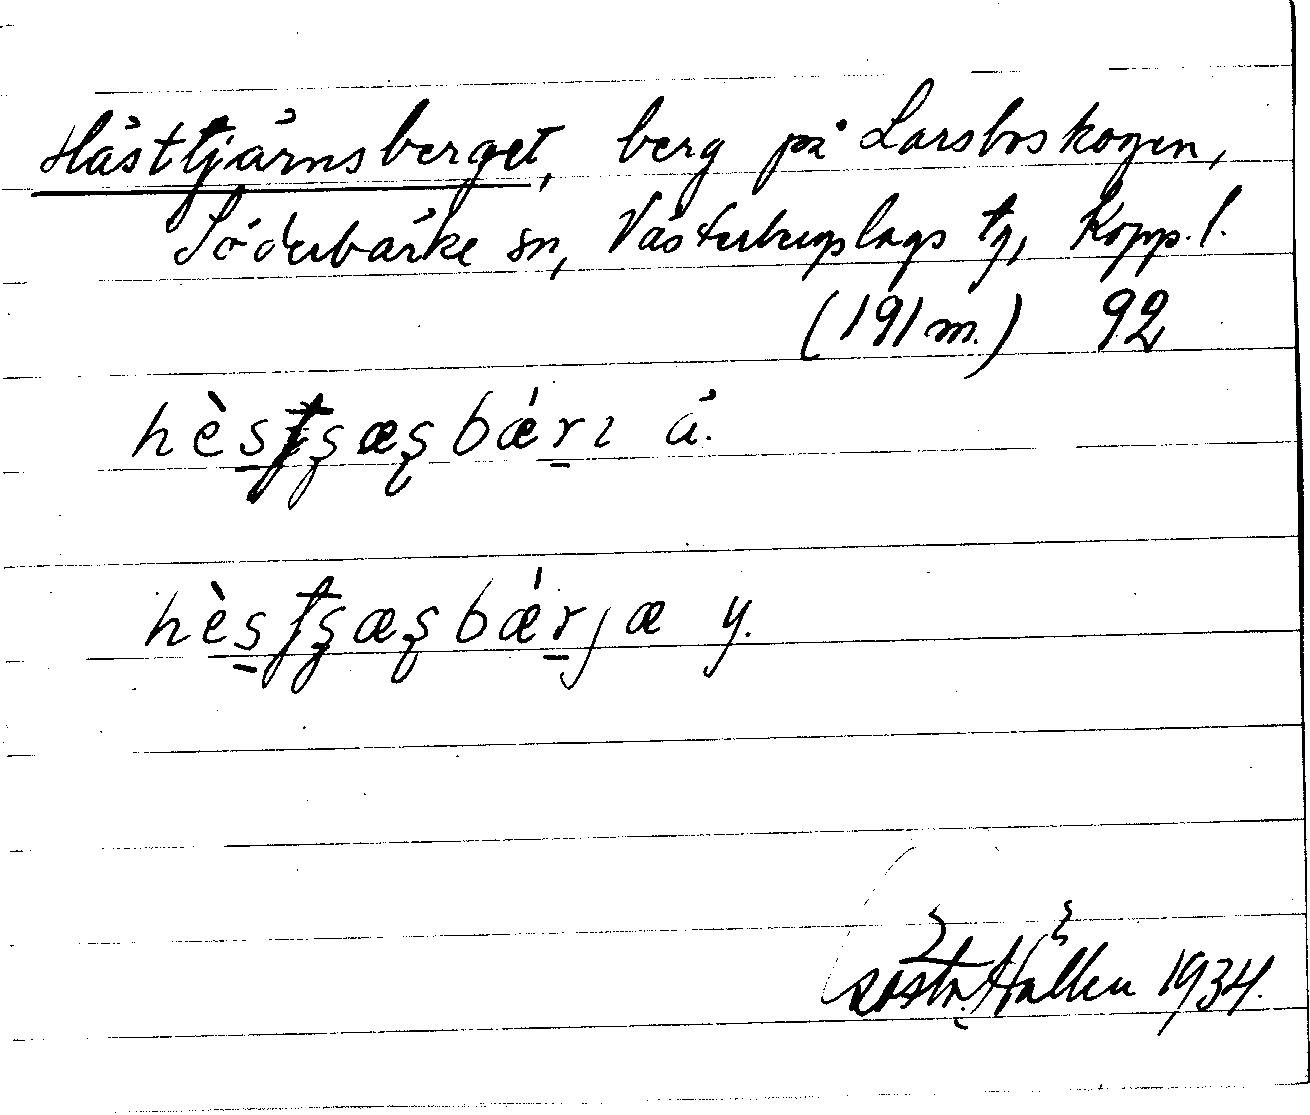 Hästtjärnsberget, berg på Larsboskogen,
Söderbärke sn, Västerbergslags tg, Kopp. l.
(191 m.) 92
hèsʈʂæʂbǽrɩ ä.
hèsʈʂæʂbǽrjæ y.
Hallen 1934.